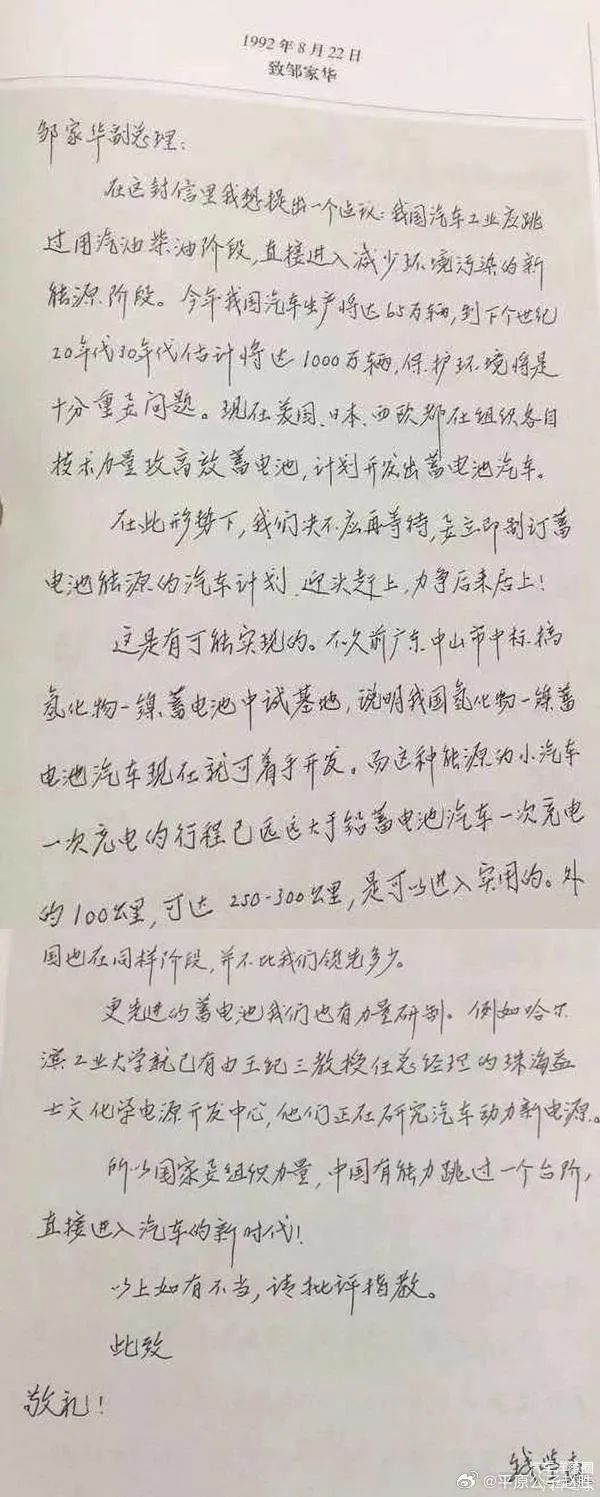 1992年8月22日
致邹家华
邹家华副总理：
在这封信里我想提出一个建议：我国汽车工业应跳
过用汽油柴油阶段，直接进入减少环境污染的新
能源阶段。今年我国汽车生产将达65万辆，到下个世纪
20年代30年代估计将达1000万辆，保护环境将是
十分重要问题。现在美国、日本、西欧都在组织各自
技术力量攻高效蓄电池，计划开发出蓄电池汽车。
在此形势下，我们决不应再等待，要立即制订蓄
电池能源的汽车计划，迎头赶上，力争后来居上！
这是有可能实现的。不久前广东中山市中标搞
氢化物－镍蓄电池中试基地，说明我国氢化物－镍蓄
电池汽车现在就可着手开发。而这种能源为小汽车
一次充电的行程已远远大于铅蓄电池汽车一次充电
的100公里，可达250-300公里，是可以进入实用的。外
国也在同样阶段，并不比我们领先多少。
更先进的蓄电池我们也有力量研制。例如哈尔
滨工业大学就已有由王纪三教授任总经理的珠海益
士文化学电源开发中心，他们正在研究汽车动力新电源。
所以国家要组织力量，中国有能力跳过一个台阶，
直接进入汽车的新时代！
以上如有不当，请批评指教。
此致
敬礼！
钱学森
@平原公子赵胜